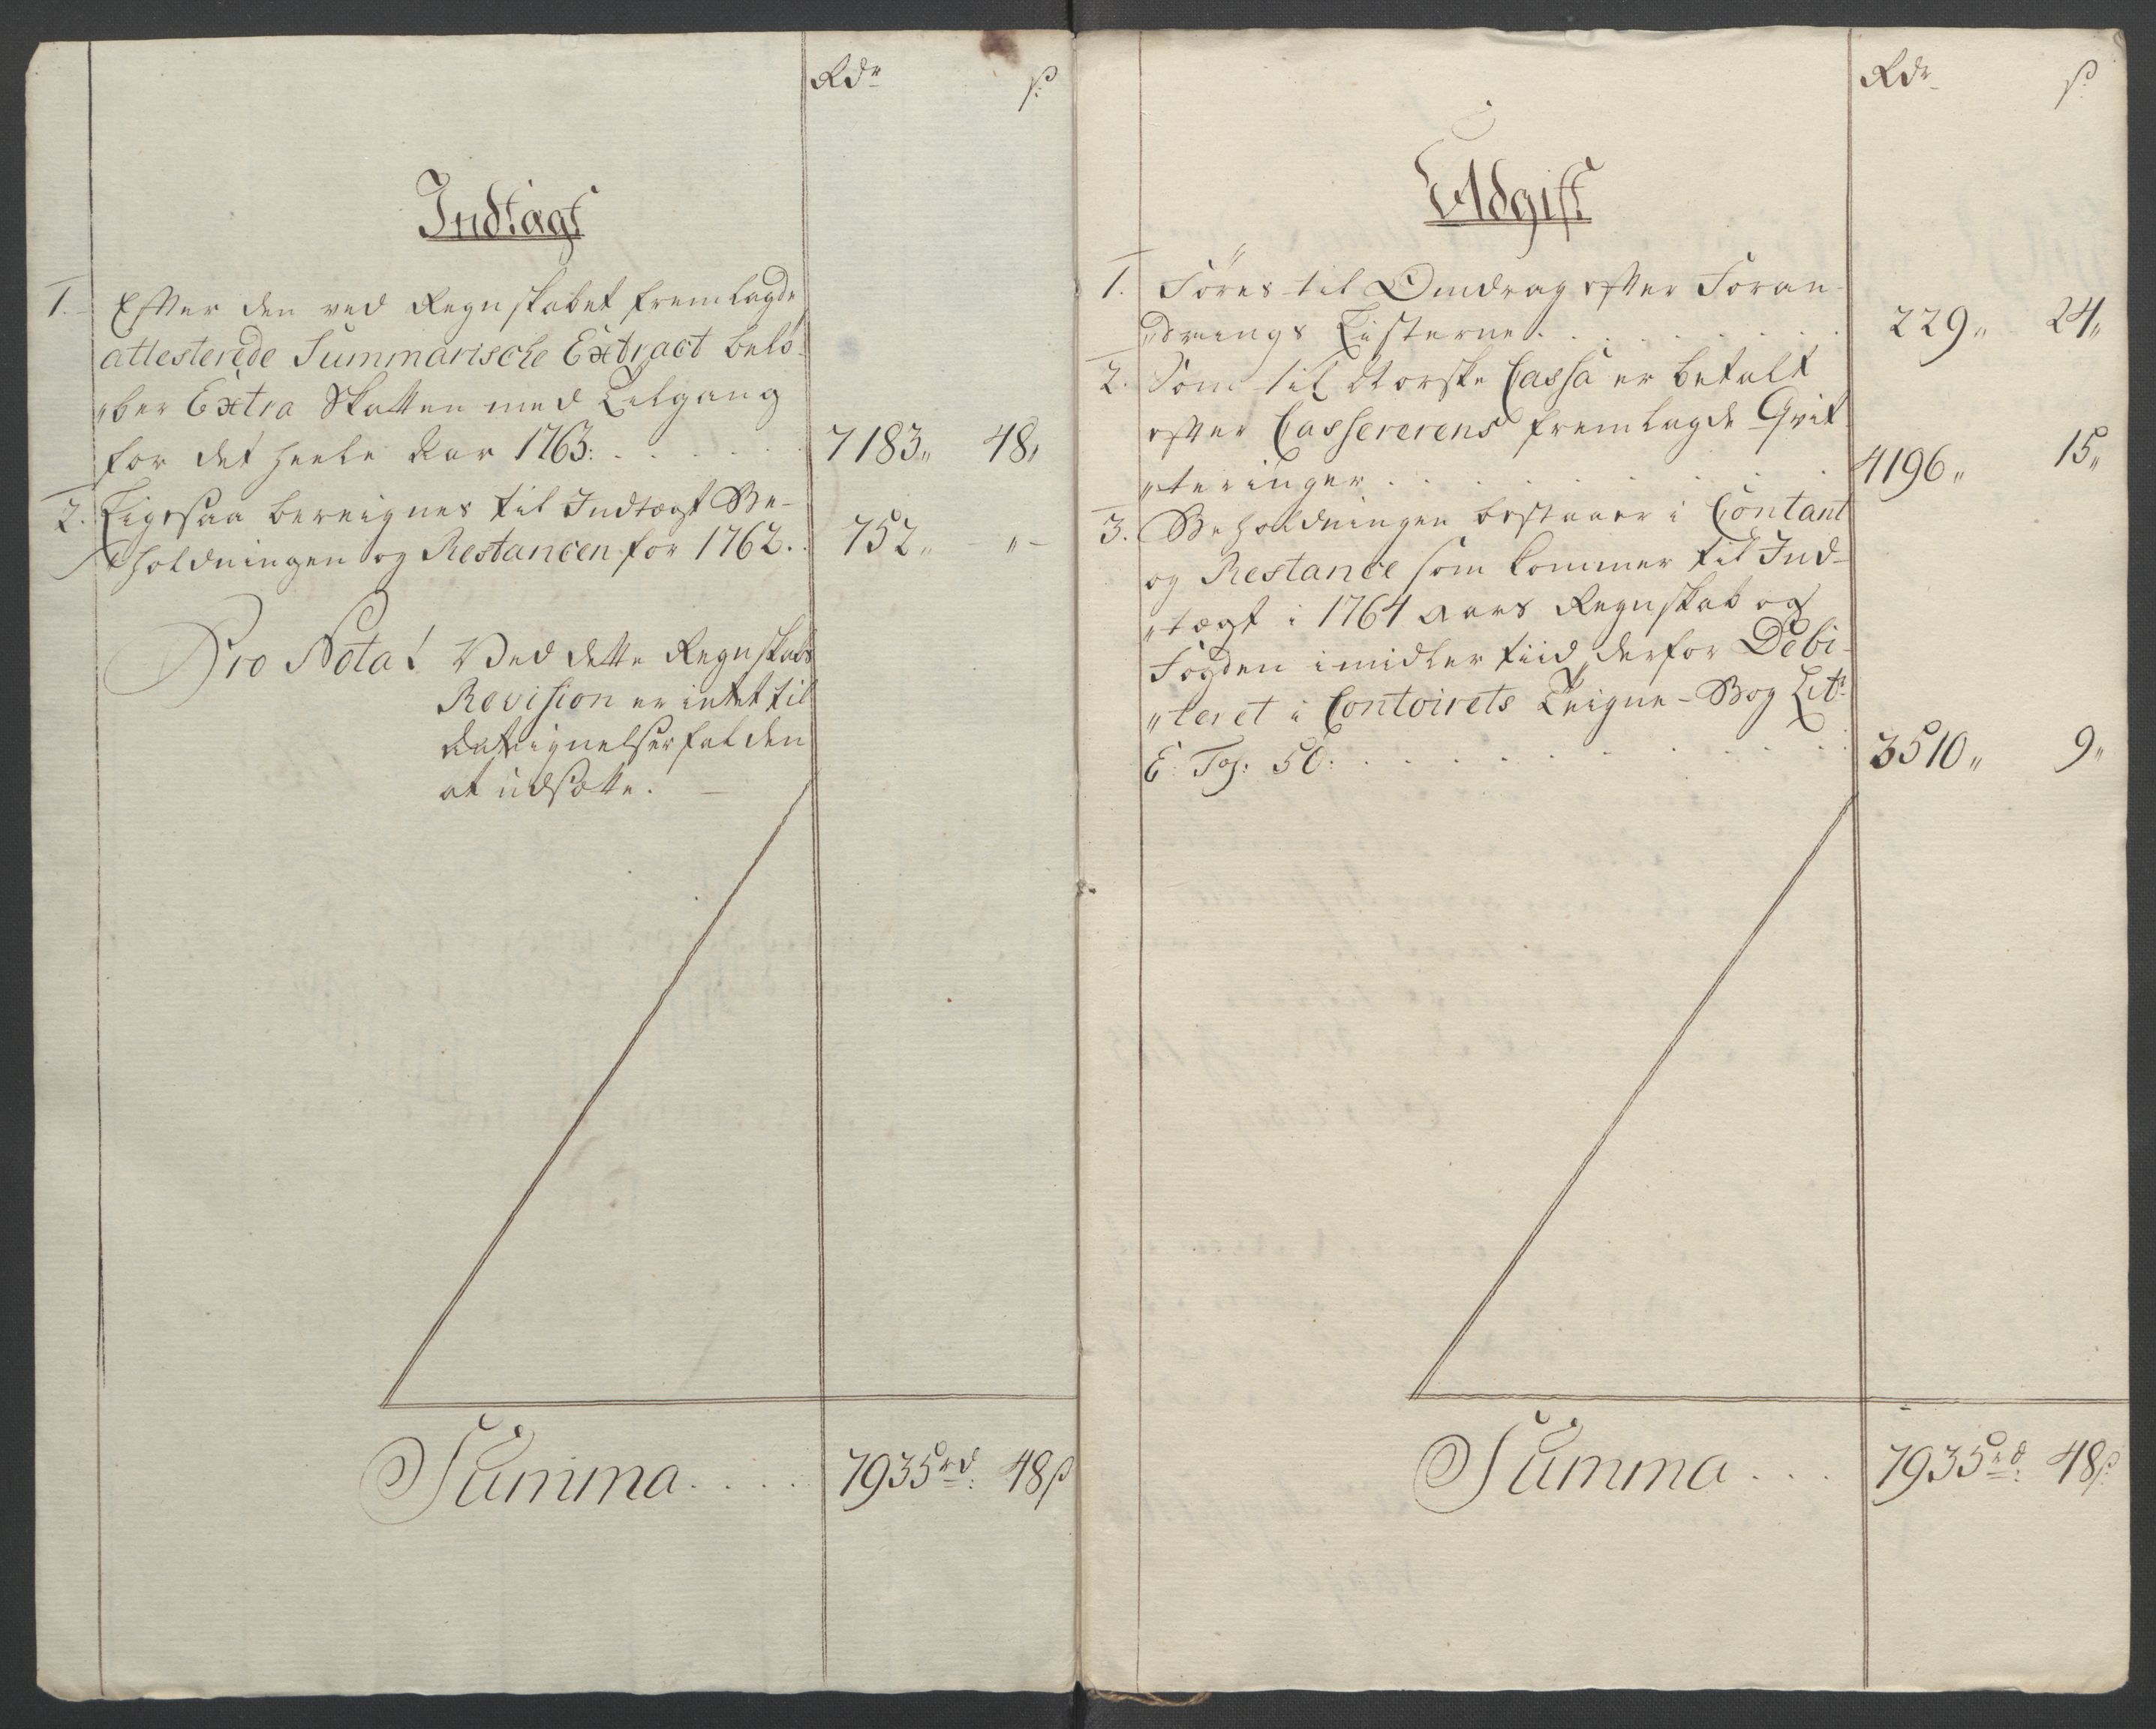 Rdr ß
Indtægt
1. Efter den ved Regnskabet fremlagde
attesterede Summarische Extract belö-
"ber Extra Skatten med Tilgang
for det heele Aar 1763: . . . . . 7183" 48"
2. Ligesaa bereignes til Indtægt Be-
holdningen og Restancen for 1762. . 752" - " -
Pro Nota! Ved dette Regnskabs
Revision er intet til
Antegnelser falden
at udsætte. -
Summa . . . . 7935rd: 48ß
Rdr ß
Udgift
1. Föres til Omdrag efter Foran-
"drings Listerne . . . . . . . 229" 24"
2. Som til Norske Cassa er betalt
efter Cassererens fremlagde Qvit-
"teringer . . . . . . . 4196" 15"
3. Beholdningen bestaaer i Contant
og Restance som kommer til Ind-
"tægt i 1764 Aars Regnskab og
Fogden imidlertiid derfor Debi-
"teret i Contoirets Teigne-Bog Litr
E. Fol: 50: . . . . . . . . 3510" 9"
Summa . . . 7935rd: 48ß